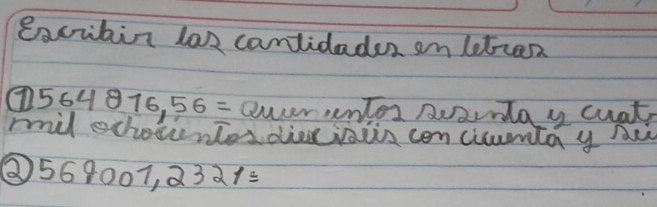 Escribir las cantidades en letras
① 564 816,56 = Quinientos sesenta y cuatr
mil ochocientos dieciséis con cicuenta y sei
② 569001,2321=